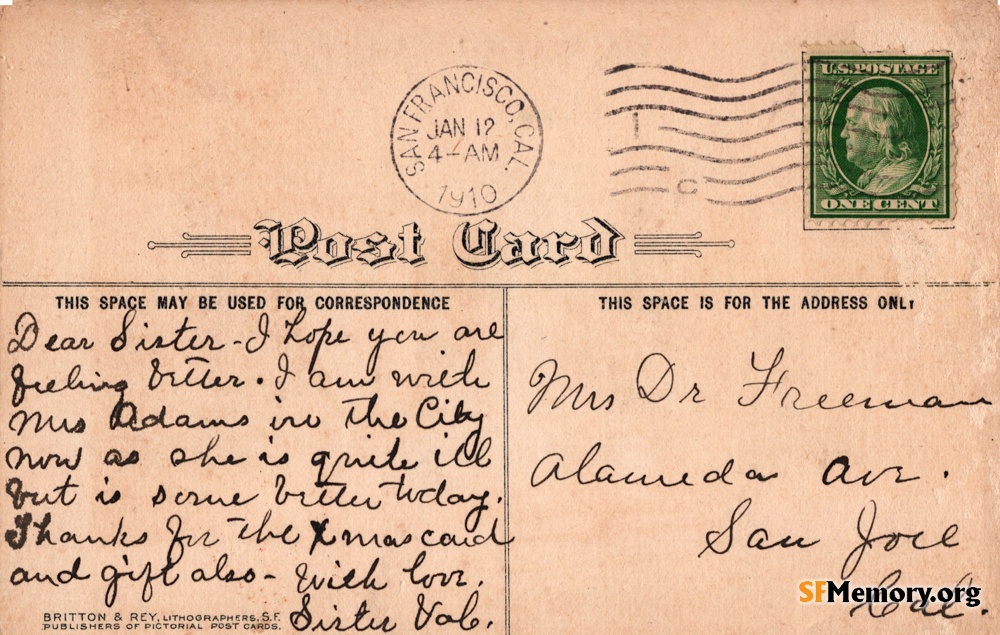 SAN FRANCISCO, CAL.
JAN 12
4-AM
1910
U.S. POSTAGE
ONE CENT
Post Card
THIS SPACE MAY BE USED FOR CORRESPONDENCE
Dear Sister - I hope you are
feeling better. I am with
Mrs Adams in the City
now as she is quite ill
but is some better today.
Thanks for the Xmas card
and gift also - With love.
Sister Val.
BRITTON & REY, LITHOGRAPHERS, S.F.
PUBLISHERS OF PICTORIAL POST CARDS.
THIS SPACE IS FOR THE ADDRESS ONLY
Mrs Dr Freeman
Alameda Ave.
San Jose
Cal.
SFMemory.org